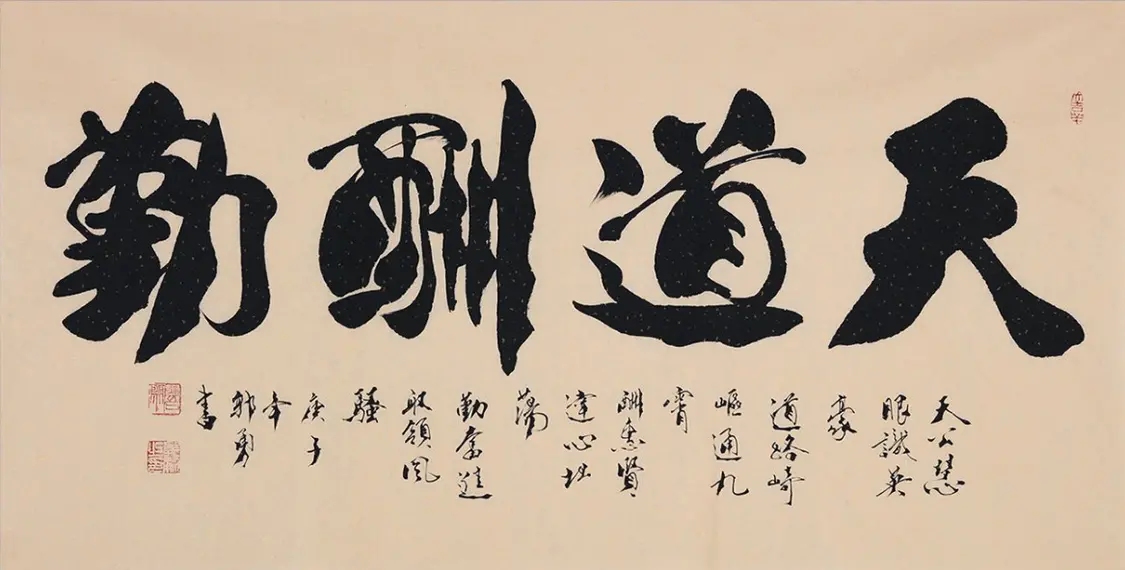 天道酬勤
天公慧
眼識英
豪
道路崎
嶇通九
霄
酬志賢
達心坦
蕩
勤奮進
取領風
騷
庚子
年
勇
書